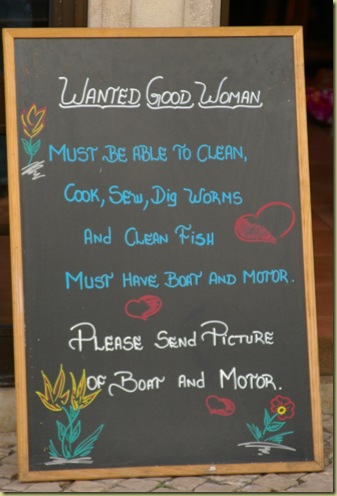 WANTED GOOD WOMAN
MUST BE ABLE TO CLEAN,
COOK, SEW, DIG WORMS
AND CLEAN FISH
MUST HAVE BOAT AND MOTOR.
PLEASE SEND PICTURE
OF BOAT AND MOTOR.